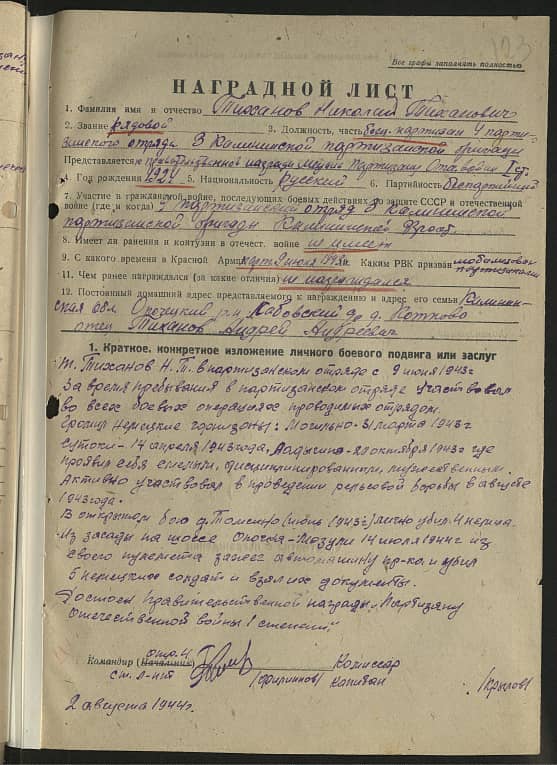 123
Все графы заполнять полностью
НАГРАДНОЙ ЛИСТ
1. Фамилия имя и отчество Тиханов Николай Тиханович
2. Звание рядовой 3. Должность, часть боец-партизан 4 парти-
занского отряда 3 Калининской партизанской бригады
Представляется к правительственной награде медали Партизану Отеч. войны I ст.
4. Год рождения 1924 5. Национальность русский 6. Партийность беспартийный
7. Участие в гражданской войне, последующих боевых действиях по защите СССР и отечественной
войне (где и когда) 4 партизанский отряд 3 Калининской
партизанской бригады Калининский фронт.
8. Имеет ли ранения и контузии в отечест. войне не имеет
9. С какого времени в Красной Армии 9 июля 1943г. Каким РВК призван мобилизован партизанами
11. Чем ранее награждался (за какие отличия) не награждался
12. Постоянный домашний адрес представляемого к награждению и адрес его семьи Калинин-
ская обл. Опочецкий р-н, д.
отец Тиханов Андрей Андреевич
1. Краткое, конкретное изложение личного боевого подвига или заслуг
т. Тиханов Н.Т. в партизанском отряде с 9 июня 1943г.
За время пребывания в партизанском отряде участвовал
во всех боевых операциях проводимых отрядом.
Громил немецкие гарнизоны: Могильно-31 марта 1943г
Сутоки-14 апреля 1943 года, октября 1943г где
проявил себя смелым, дисциплинированным, мужественным.
Активно участвовал в проведении рельсовой войны в августе
1943 года.
В открытом бою д. Томсино (июнь 1943г.) лично убил 4 немца.
Из засады на шоссе Опочка-Мозули 14 июля 1944г из
своего пулемета зажег автомашину пр-ка и убил
5 немецких солдат и взял их документы.
Достоин правительственной награды „Партизану
Отечественной войны I степени".
Командир (Начальник) отр. 4 Комиссар
ст. л-нт (Филиппов) Капитан /Крылов/
2 августа 1944г.